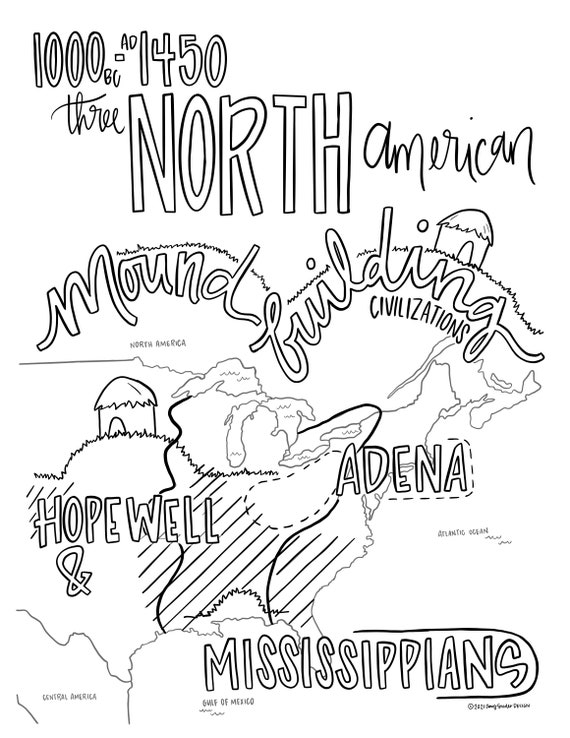 1000 BC - AD 1450
three NORTH american
mound building
CIVILIZATIONS
NORTH AMERICA
ADENA
HOPEWELL
&
ATLANTIC OCEAN
MISSISSIPPIANS
CENTRAL AMERICA
GULF OF MEXICO